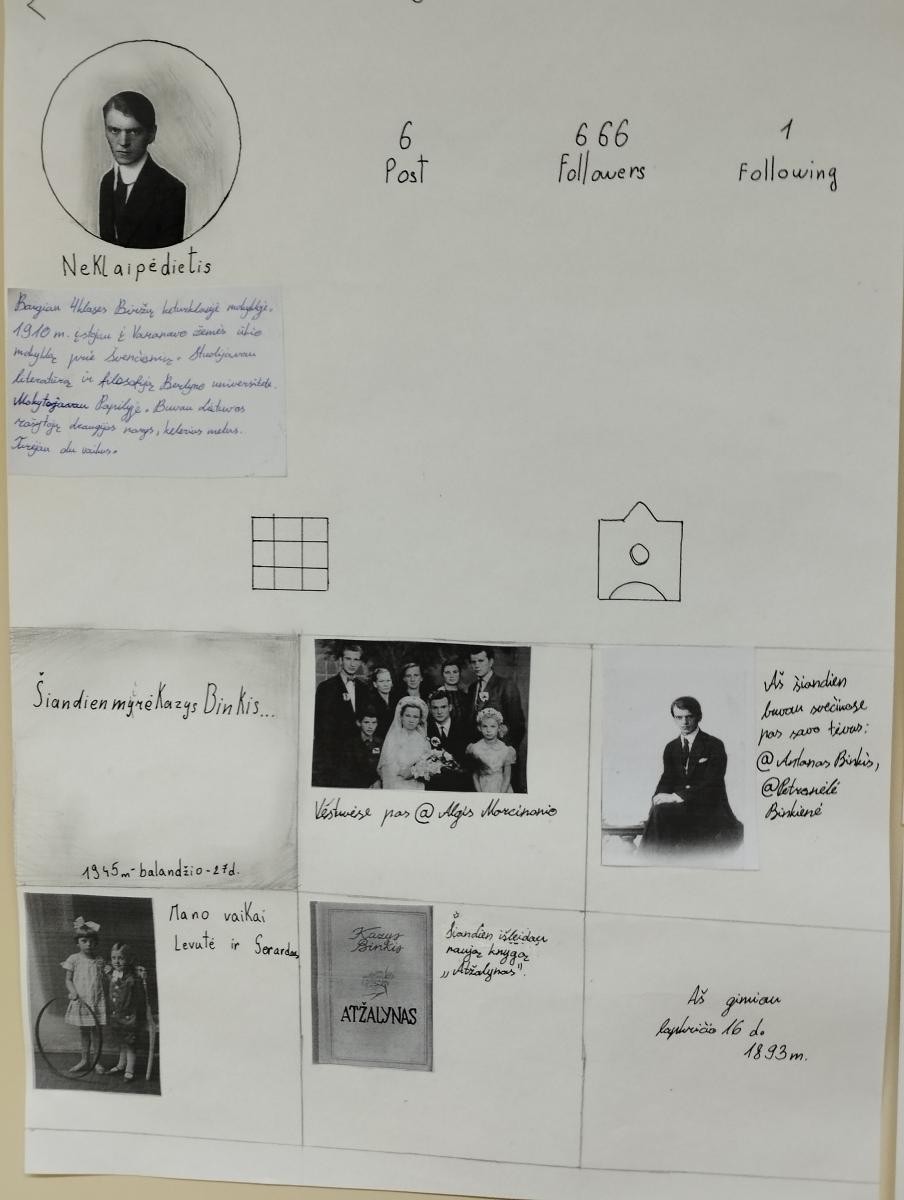 6
Post
666
Followers
1
Following
Neklaipėdietis
Baigiau 4klases Biržų keturklasėje mokykloje.
1910 m. įstojau į Varanavo žemės ūkio
mokyklą prie Švenčionių. Studijavau
literatūrą ir filosofiją Berlyno universitete.
Mokytojavau Papilyje. Buvau Lietuvos
rašytojų draugijos narys, kelerius metus.
Turėjau du vaikus.
Šiandien myrė Kazys Binkis...
1945m-balandžio-27d.
Vęstuvėse pas @ Algis Marcinonio
Aš šiandien
buvau svečiuose
pas savo tėvus:
@Antanas Binkis,
@Petronėlė
Binkienė
Mano vaikai
Levutė ir Gerardas
Kazys
Binkis
ATŽALYNAS
Šiandien išleidau
naują knygą
„Atžalynas".
Aš gimiau
lapkričio 16 d.
1893m.